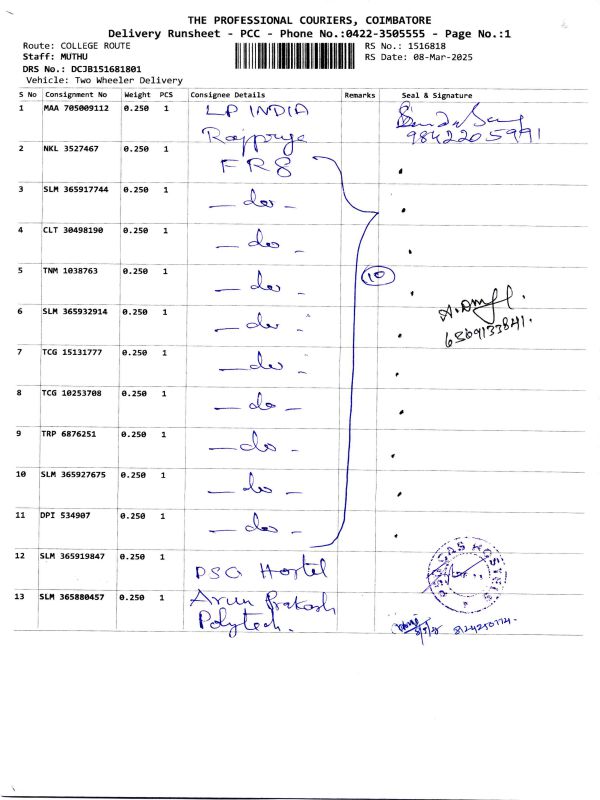 THE PROFESSIONAL COURIERS, COIMBATORE
Delivery Runsheet - PCC - Phone No.:0422-3505555 - Page No.:1
Route: COLLEGE ROUTE
RS No.: 1516818
Staff: MUTHU
RS Date: 08-Mar-2025
DRS No.: DCJB151681801
Vehicle: Two Wheeler Delivery
S No Consignment No Weight PCS Consignee Details Remarks Seal & Signature
1 MAA 705009112 0.250 1 LP INDIA
Rajpriya
9842205991
2 NKL 3527467 0.250 1 FR8
3 SLM 365917744 0.250 1 - do -
4 CLT 30498190 0.250 1 - do -
5 TNM 1038763 0.250 1 - do - 10
6 SLM 365932914 0.250 1 - do -
6369133841.
7 TCG 15131777 0.250 1 - do -
8 TCG 10253708 0.250 1 - do -
9 TRP 6876251 0.250 1 - do -
10 SLM 365927675 0.250 1 - do -
11 DPI 534907 0.250 1 - do -
12 SLM 365919847 0.250 1 PSG Hostel
13 SLM 365880457 0.250 1 Arun Prakash
Polytech.
8/3/25